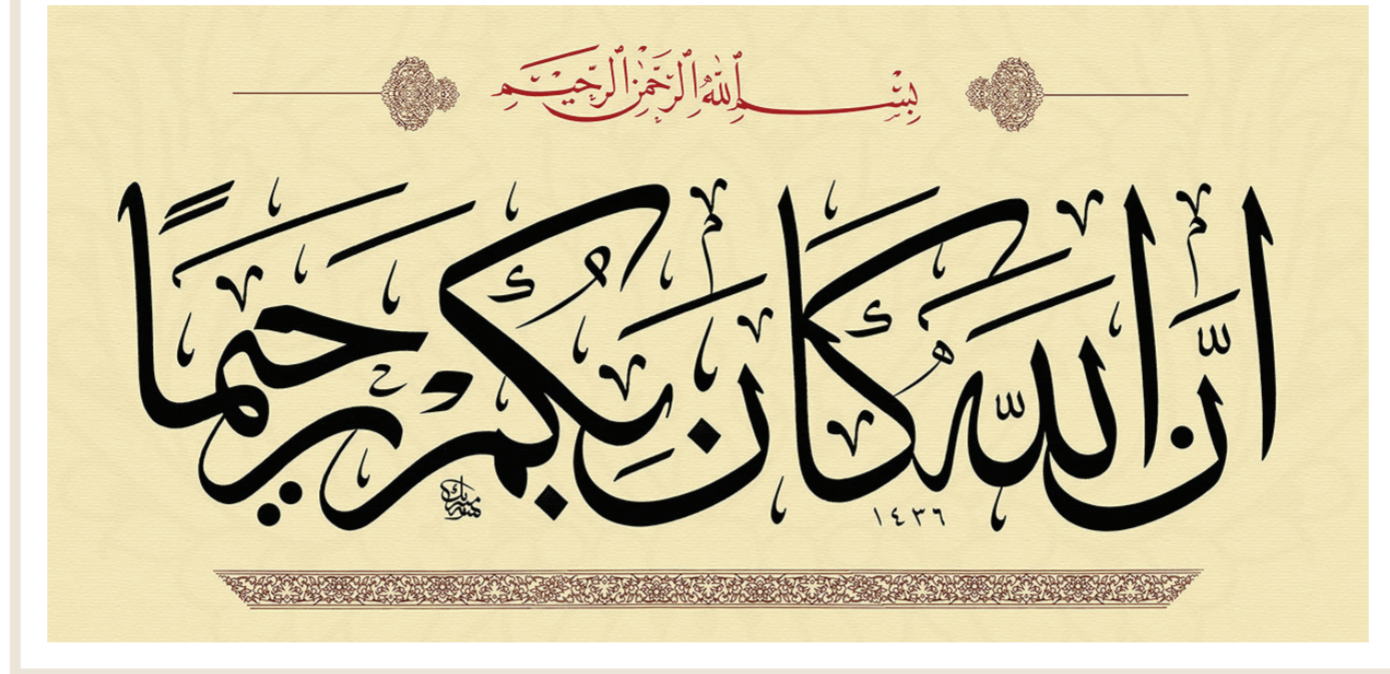 بِسْمِ اللهِ الرَّحْمٰنِ الرَّحِيْمِ
اِنَّ اللّهَ كَانَ بِكُمْ رَحِيمًا
١٤٣٦